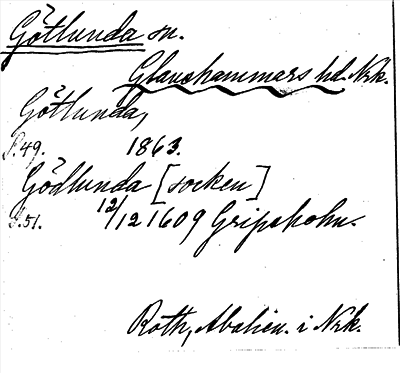 Götlunda sn.
Glanshammars hd. Nrk.
Götlunda,
S. 49. 1863.
Gödlunda [socken]
S. 51. 12/12 1609 Gripsholm.
Roth, Abalien. i Nrk.